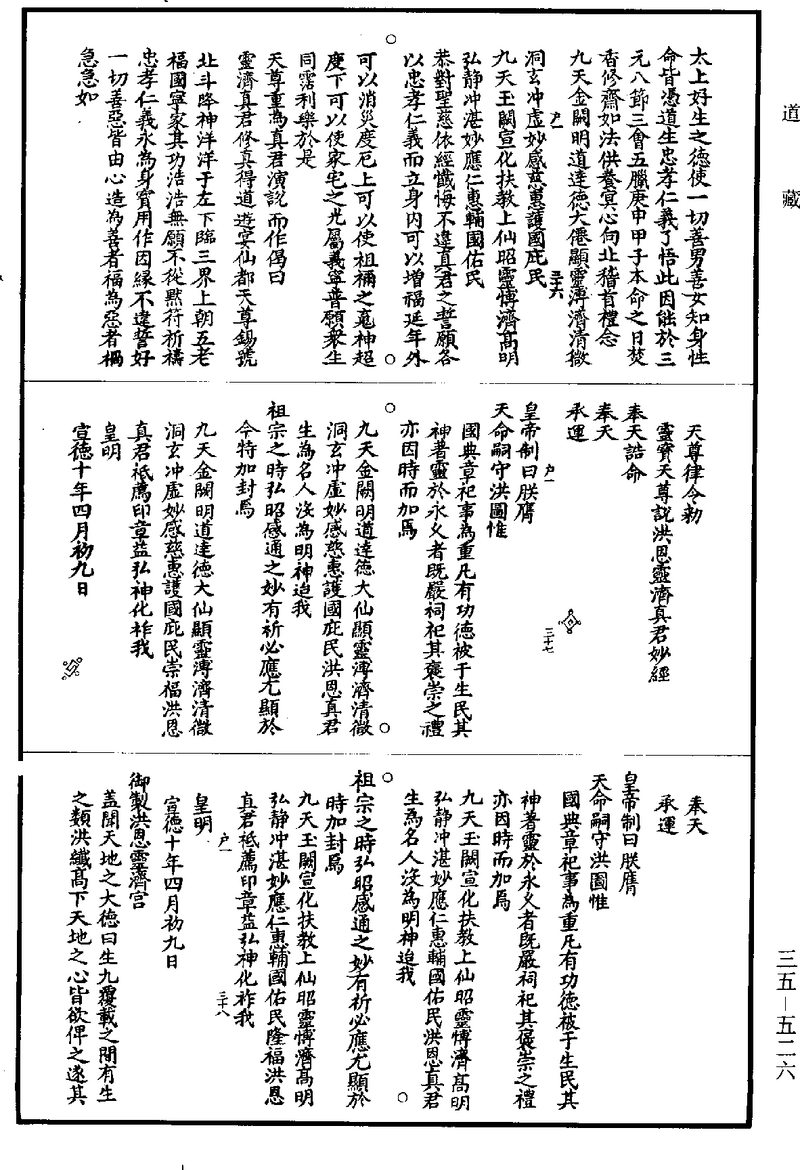 道藏
太上好生之德使一切善男善女知身性
命皆憑道生忠孝仁義了悟此因能於三
元八節三會五臘庚申甲子本命之日焚
香修齋如法供養冥心向北稽首禮念
九天金闕明道達德大僊顯靈溥濟清微
洞玄冲虛妙感慈惠護國庇民
九天玉闕宣化扶教上仙昭靈博濟高明
弘静冲湛妙應仁惠輔國佑民
恭對聖慈依經懺悔不違真君之誓願各
以忠孝仁義而立身内可以增福延年外
可以消災度厄上可以使祖禰之䰟神超
度下可以使家宅之光屬義寧普願衆生
同霑利樂於是
天尊重為真君演說而作偈曰
靈濟真君修真得道遊宴仙都天尊錫號
北斗降神洋洋于左下臨三界上朝五老
福國寧家其功浩浩無願不從黙符祈禱
忠孝仁義永為身寳用作因緣不違誓好
一切善惡皆由心造為善者福為惡者禍
急急如
户一
三十六
天尊律令勑
靈寳天尊說洪恩靈濟真君妙經
奉天誥命
奉天
承運
户一
三十七
皇帝制曰朕膺
天命嗣守洪圖惟
國典章祀事為重凡有功德被于生民其
神著靈於永乂者既嚴祠祀其褒崇之禮
亦因時而加焉
九天金闕明道達德大仙顯靈溥濟清微
洞玄冲虛妙感慈惠護國庇民洪恩真君
生為名人沒為明神迨我
祖宗之時弘昭感通之妙有祈必應尤顯於
今特加封焉
九天金闕明道達德大仙顯靈溥濟清微
洞玄冲虛妙感慈惠護國庇民崇福洪恩
真君祗薦印章益弘神化祚我
皇明
宣德十年四月初九日
奉天
承運
皇帝制曰朕膺
天命嗣守洪圖惟
國典章祀事為重凡有功德被于生民其
神著靈於永乂者既嚴祠祀其褒崇之禮
亦因時而加焉
九天玉闕宣化扶教上仙昭靈博濟高明
弘静冲湛妙應仁惠輔國佑民洪恩真君
生為名人沒為明神迨我
祖宗之時弘昭感通之妙有祈必應尤顯於
時加封焉
九天玉闕宣化扶教上仙昭靈博濟高明
弘静冲湛妙應仁惠輔國佑民隆福洪恩
真君祗薦印章益弘神化祚我
户一
三十八
皇明
宣德十年四月初九日
御製洪恩靈濟宮
蓋聞天地之大德曰生九覆載之間有生
之類洪纖高下天地之心皆欲俾之遂其
三五—五二六